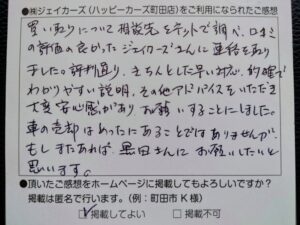 ●㈱ジェイカーズ（ハッピーカーズ町田店）をご利用になられたご感想
買い取りについて相談先をネットで調べ、口コミ
の評価の良かったジェイカーズさんに連絡を取り
ました。評判通り、きちんとした早い対応、的確で
わかりやすい説明、その他アドバイスをいただき
大変安心感があり お願いすることにしました。
車の売却はめったにあることではありませんが、
もしまたあれば、黒田さんに お願いしたいと
思います。
●頂いたご感想をホームページに掲載してもよろしいですか？
掲載は匿名で行います。（例：町田市K様）
☑掲載してよい □掲載不可